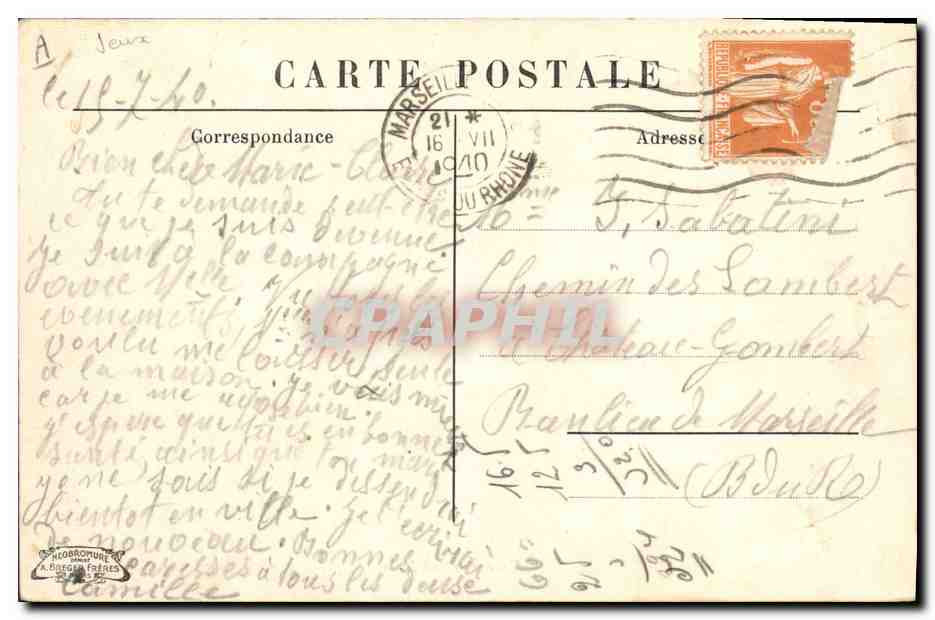 A Jeux
CARTE POSTALE
le 15-7-40.
Correspondance
Adresse
MARSEILLE
21 *
16 VII
1940
DU RHONE
REPUBLIQUE FRANCAISE
Bien chère Marie-Claire
Tu te demande peut-être
ce que je suis devenue
je suis à la campagne
avec Melle
evenements,
voulu me laisser seule
à la maison. Je vais mieux
car je me
j'espère que tu es en bonne
santé, ainsi que ton mari
je ne sais si je descendrai
bientot en ville. Je t'écrirai
de nouveau. Bonnes
caresses à tous les deux
Camille
J. Sabatini
Chemin des Lambert
Château-Gombert
Banlieu de Marseille
(B du R)
CPRAPHIL
165
125
3
320
NEOBROMURE
A. BREGER FRÈRES
PARIS